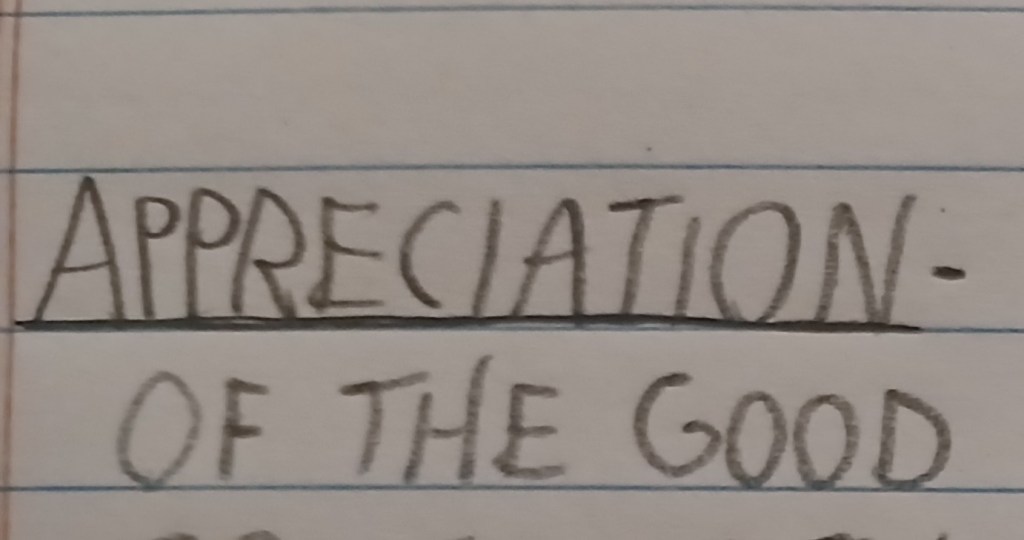 APPRECIATION-
OF THE GOOD